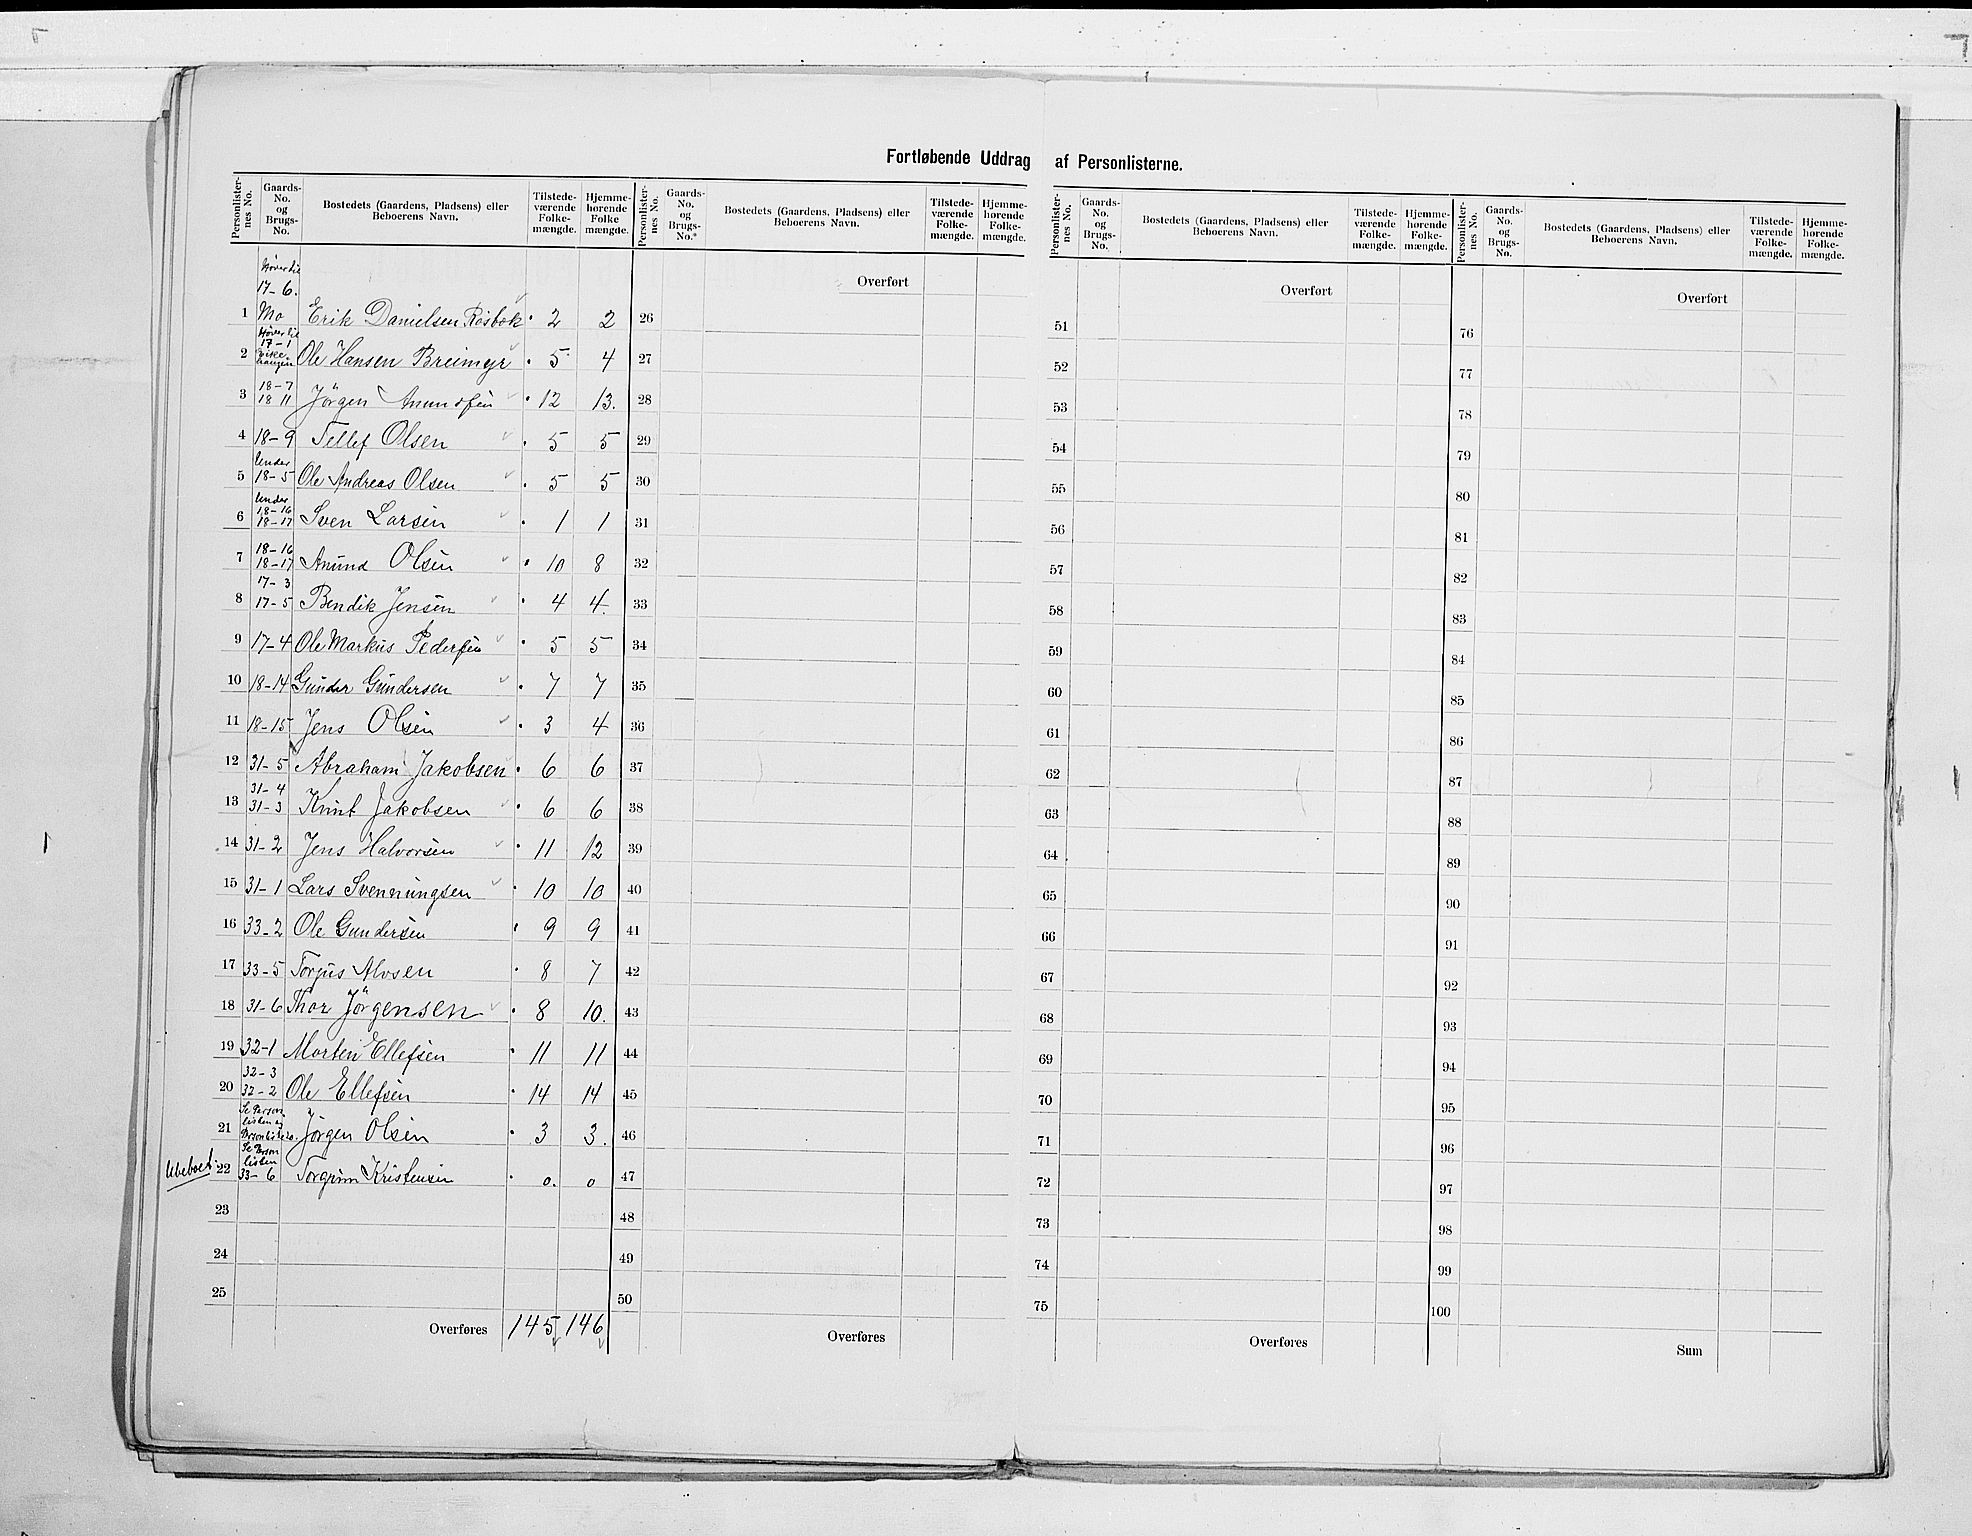 Fortløbende Uddrag af Personlisterne.
Personlister-nes No. | Gaards-No. og Brugs-No. | Bostedets (Gaardens, Pladsens) eller Beboerens Navn. | Tilstede-værende Folke-mængde. | Hjemme-hørende Folke mængde.
Hører til 17-6.
1 Mo Erik Danielsen Røsbok 2 2
Hører til 17-1
2 Ole Hansen Breimyr 5 4
18-7
3 18 11 Jörgen Anundsen 12 13.
4 18-9 Tellef Olsen 5 5
Under
5 18-5 Ole Andreas Olsen 5 5
Under 18-16
6 18-17 Sven Larsen 1 1
18-16
7 18-17 Anund Olsen 10 8
17-3
8 17-5 Bendik Jensen 4 4.
9 17-4 Ole Markus Pedersen 5 5
10 18-14 Gunder Gundersen 7 7
11 18-15 Jens Olsen 3 4
12 31-5 Abraham Jakobsen 6 6
31-4
13 31-3 Knut Jakobsen 6 6
14 31-2 Jens Halvorsen 11 12
15 31-1 Lars Svennungsen 10 10
16 33-2 Ole Gundersen 9 9
17 33-5 Torjus Alvsen 8 7
18 31-6 Thor Jörgensen 8 10.
19 32-1 Morten Ellefsen 11 11
32-3
20 32-2 Ole Ellefsen 14 14
Se Person
listen og
21 Personliste 10. Jörgen Olsen 3 3.
Se Person
listen
Ubeboet. 22 33-6 Torgrim Kristensen 0. 0
23
24
25
Overføres 145 146
Personlister-nes No. | Gaards-No. og Brugs-No.* | Bostedets (Gaardens, Pladsens) eller Beboerens Navn. | Tilstede-værende Folke-mængde. | Hjemme-hørende Folke-mængde.
Overført
26
27
28
29
30
31
32
33
34
35
36
37
38
39
40
41
42
43
44
45
46
47
48
49
50
Overføres
Personlister-nes No. | Gaards-No. og Brugs-No. | Bostedets (Gaardens, Pladsens) eller Beboerens Navn. | Tilstede-værende Folke-mængde. | Hjemme-hørende Folke-mængde.
Overført
51
52
53
54
55
56
57
58
59
60
61
62
63
64
65
66
67
68
69
70
71
72
73
74
75
Overføres
Personlister-nes No. | Gaards-No. og Brugs-No. | Bostedets (Gaardens, Pladsens) eller Beboerens Navn. | Tilstede-værende Folke-mængde. | Hjemme-hørende Folke-mængde.
Overført
76
77
78
79
80
81
82
83
84
85
86
87
88
89
90
91
92
93
94
95
96
97
98
99
100
Sum